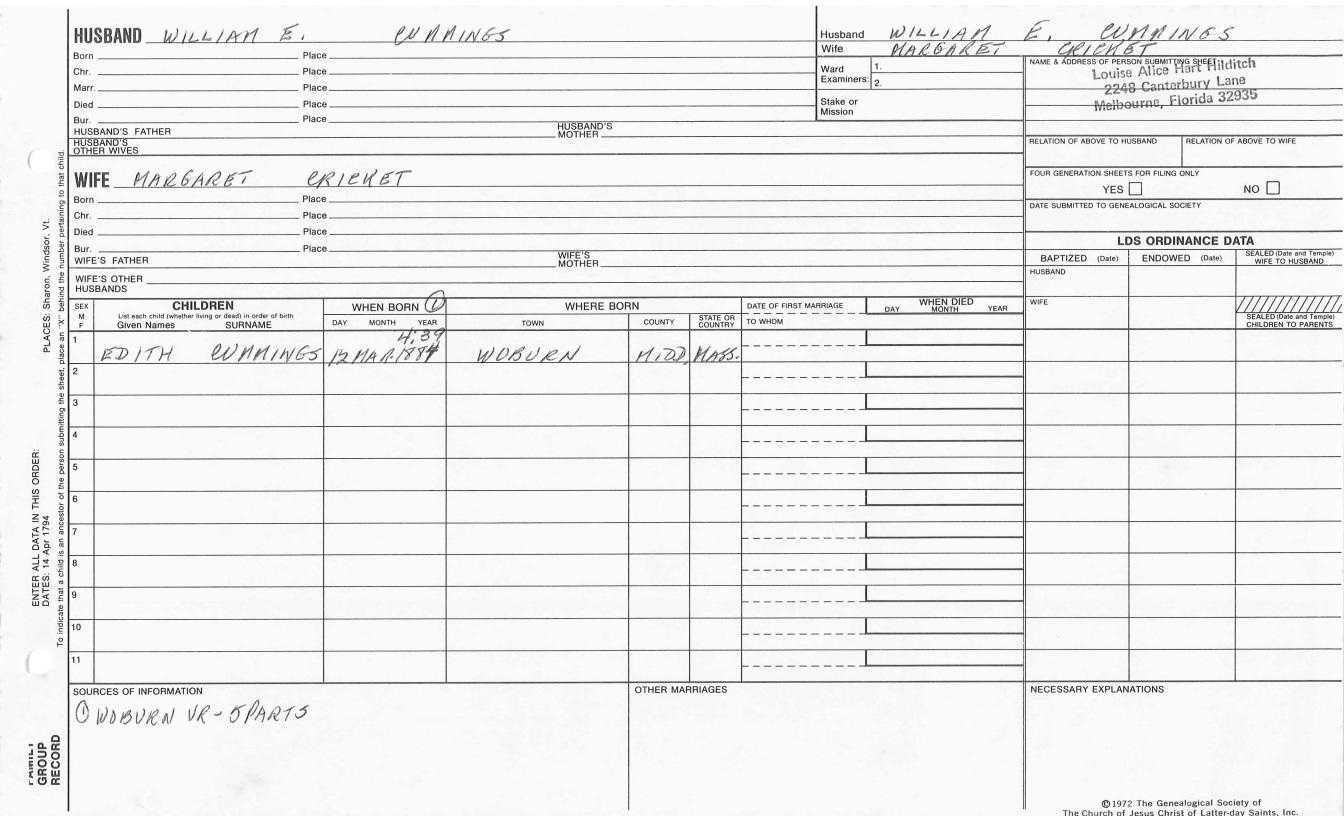 HUSBAND WILLIAM E. CUMMINGS
Born Place
Chr. Place
Marr. Place
Died Place
Bur. Place
HUSBAND'S FATHER HUSBAND'S MOTHER
HUSBAND'S OTHER WIVES
Husband WILLIAM E. CUMMINGS
Wife MARGARET CRICKET
Ward Examiners: 1.
2.
Stake or Mission
NAME & ADDRESS OF PERSON SUBMITTING SHEET
Louise Alice Hart Hilditch
2248 Canterbury Lane
Melbourne, Florida 32935
RELATION OF ABOVE TO HUSBAND RELATION OF ABOVE TO WIFE
FOUR GENERATION SHEETS FOR FILING ONLY
YES NO
DATE SUBMITTED TO GENEALOGICAL SOCIETY
WIFE MARGARET CRICKET
Born Place
Chr. Place
Died Place
Bur. Place
WIFE'S FATHER WIFE'S MOTHER
WIFE'S OTHER HUSBANDS
LDS ORDINANCE DATA
BAPTIZED (Date) ENDOWED (Date) SEALED (Date and Temple) WIFE TO HUSBAND
HUSBAND
WIFE
SEALED (Date and Temple) CHILDREN TO PARENTS
SEX M F
CHILDREN
List each child (whether living or dead) in order of birth
Given Names SURNAME
WHEN BORN ①
DAY MONTH YEAR
WHERE BORN
TOWN COUNTY STATE OR COUNTRY
DATE OF FIRST MARRIAGE
TO WHOM
WHEN DIED
DAY MONTH YEAR
4:39
1 EDITH CUMMINGS 12 MAR.1884 WOBURN MIDD. MASS.
2
3
4
5
6
7
8
9
10
11
SOURCES OF INFORMATION
① WOBURN VR - 5 PARTS
OTHER MARRIAGES
NECESSARY EXPLANATIONS
©1972 The Genealogical Society of
The Church of Jesus Christ of Latter-day Saints, Inc.
ENTER ALL DATA IN THIS ORDER:
DATES: 14 Apr 1794 PLACES: Sharon, Windsor, Vt.
To indicate that a child is an ancestor of the person submitting the sheet, place an "X" behind the number pertaining to that child.
FAMILY
GROUP
RECORD